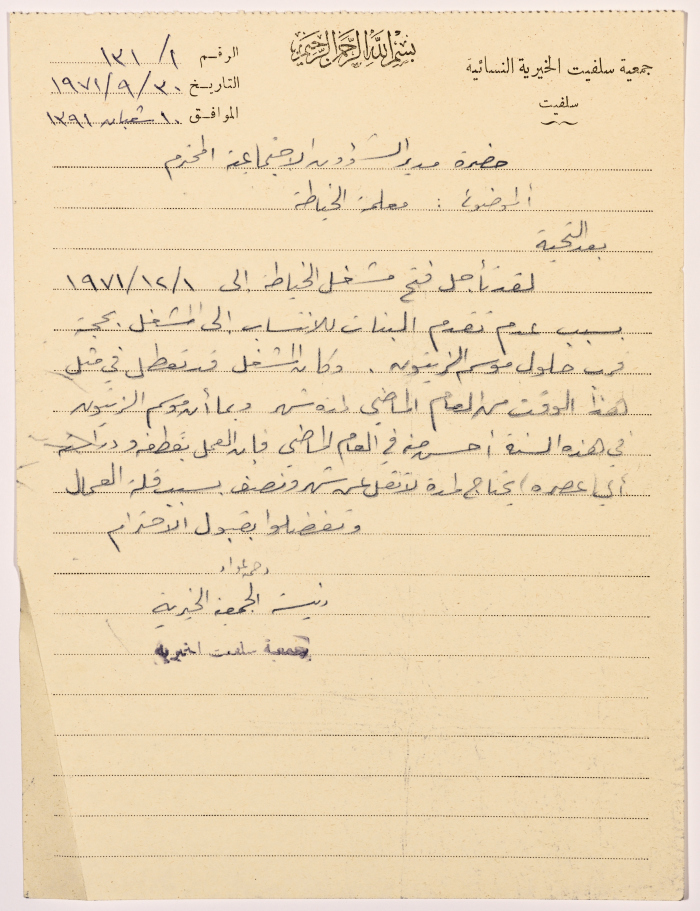 بسم الله الرحمن الرحيم
جمعية سلفيت الخيرية النسائية
سلفيت
الرقم ١/ ١٣١
التاريخ ٣٠/ ٩/ ١٩٧١
الموافق ١٠ شعبان ١٣٩١
حضرة مدير الشؤون الاجتماعية المحترم
الموضوع : معلمة الخياطة
بعد التحية
لقد تأجل فتح مشغل الخياطة إلى ١/ ١٢/ ١٩٧١
بسبب عدم تقدم البنات للانتساب إلى المشغل بحجة
قرب حلول موسم الزيتون . وكان المشغل قد تعطل في مثل
هذا الوقت من العام الماضي لمدة شهر وبما أن موسم الزيتون
في هذه السنة أحسن منه في العام الماضي فإن العمل بقطفه ودراسته
أي (عصره) يحتاج لمدة لا تقل عن شهر ونصف بسبب قلة العمال
وتفضلوا بقبول الاحترام
رئيسة الجمعية الخيرية
جمعية سلفيت الخيرية